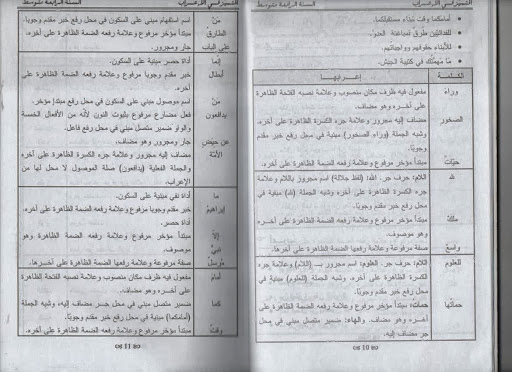 السنة الرابعة متوسط
• أمامكما وقت شتاء مستقبلكما.
• للفدائيين طرق لمباغتة العدو.
• للأبناء حقوقهم وواجباتهم.
• ما مهملك في كتيبة الجيش.
الكلمة
إعرابها
وراءَ
مفعول فيه ظرف مكان منصوب وعلامة نصبه الفتحة الظاهرة
على آخره وهو مضاف.
الصخورِ
مضاف إليه مجرور وعلامة جره الكسرة الظاهرة على آخره.
وشبه الجملة (وراء الصخور) مبنية في محل رفع خبر مقدم
وجوبًا.
حيّاتٌ
مبتدأ مؤخر مرفوع وعلامة رفعه الضمة الظاهرة على آخره.
لله
اللام: حرف جر. الله: (لفظ جلالة) اسم مجرور باللام وعلامة
جره الكسرة الظاهرة على آخره. وشبه الجملة (لله) مبنية في
محل رفع خبر مقدم وجوبًا.
ملكٌ
مبتدأ مؤخر مرفوع وعلامة رفعه الضمة الظاهرة على آخره
وهو موصوف.
واسعٌ
صفة مرفوعة وعلامة رفعها الضمة الظاهرة على آخرها.
للعلوم
اللام: حرف جر. العلوم: اسم مجرور بـ (اللام) وعلامة جره
الكسرة الظاهرة على آخره، وشبه الجملة (للعلوم) مبنية في
محل رفع خبر مقدم وجوبًا.
حماتُها
حماتُ: مبتدأ مؤخر مرفوع وعلامة رفعه الضمة الظاهرة على
آخره وهو مضاف. والهاء: ضمير متصل مبني في محل
جر مضاف إليه.
10
السنة الرابعة متوسط
مَنْ
اسم استفهام مبني على السكون في محل رفع خبر مقدم وجوبًا
الطارقُ
مبتدأ مؤخر مرفوع وعلامة رفعه الضمة الظاهرة على آخره.
على الباب
جار ومجرور.
إنما
أداة حصر مبنية على السكون.
أبطال
خبر مقدم وجوبا مرفوع وعلامة رفعه الضمة الظاهرة على
آخره.
مَنْ
اسم موصول مبني على السكون في محل رفع مبتدإ مؤخر.
يدافعون
فعل مضارع مرفوع بثبوت النون لأنه من الأفعال الخمسة
والواو ضمير متصل مبني في محل رفع فاعل.
عن حيضِ
جار ومجرور وهو مضاف.
الأمّة
مضاف إليه مجرور وعلامة جره الكسرة الظاهرة على آخره.
والجملة الفعلية (يدافعون) صلة الموصول لا محل لها من
الإعراب.
ما
أداة نفي مبنية على السكون.
إبراهيمُ
خبر مقدم وجوبا مرفوع وعلامة رفعه الضمة الظاهرة على آخره.
إلاّ
أداة حصر.
نبيٌّ
مبتدأ مؤخر مرفوع وعلامة رفعه الضمة الظاهرة وهو
موصوف.
مُرسلٌ
صفة مرفوعة وعلامة رفعها الضمة الظاهرة على آخرها.
أمامَ
مفعول فيه ظرف مكان منصوب وعلامة نصبه الفتحة الظاهرة
على آخره وهو مضاف.
كما
ضمير متصل مبني في محل جر مضاف إليه، وشبه الجملة
(أمامكما) مبنية في محل رفع خبر مقدم وجوبًا.
وقتٌ
مبتدأ مؤخر مرفوع وعلامة رفعه الضمة الظاهرة على آخره.
11